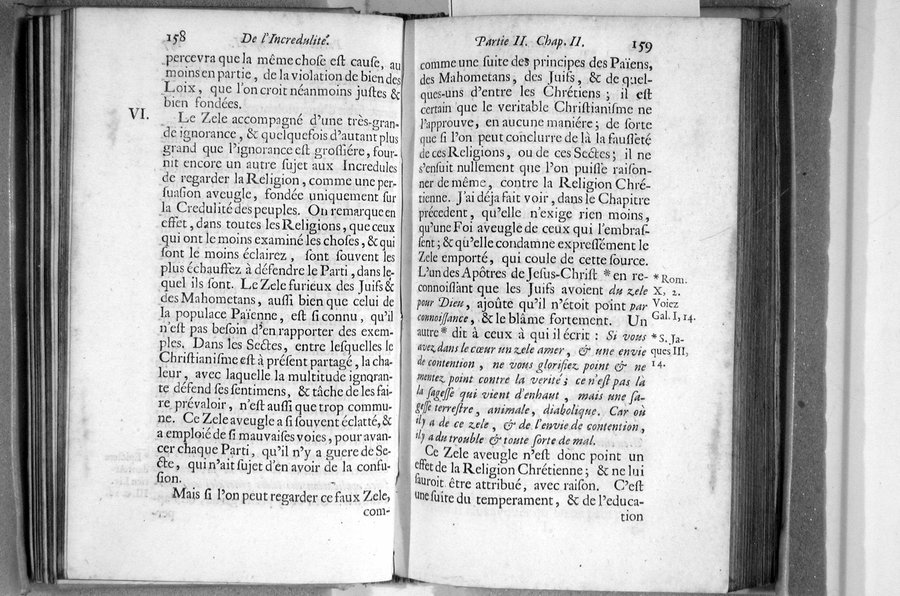 158 De l'Incredulité.
percevra que la même chose est cause, au
moins en partie, de la violation de bien des
Loix, que l'on croit néanmoins justes &
bien fondées.
VI.
Le Zele accompagné d'une très-gran-
de ignorance, & quelquefois d'autant plus
grand que l'ignorance est grossiére, four-
nit encore un autre sujet aux Incredules
de regarder la Religion, comme une per-
suasion aveugle, fondée uniquement sur
la Credulité des peuples. On remarque en
effet, dans toutes les Religions, que ceux
qui ont le moins examiné les choses, & qui
sont le moins éclairez, sont souvent les
plus échauffez à défendre le Parti, dans le-
quel ils sont. Le Zele furieux des Juifs &
des Mahometans, aussi bien que celui de
la populace Païenne, est si connu, qu'il
n'est pas besoin d'en rapporter des exem-
ples. Dans les Sectes, entre lesquelles le
Christianisme est à présent partagé, la cha-
leur, avec laquelle la multitude ignoran-
te défend ses sentimens, & tâche de les fai-
re prévaloir, n'est aussi que trop commu-
ne. Ce Zele aveugle a si souvent éclatté, &
a emploié de si mauvaises voies, pour avan-
cer chaque Parti, qu'il n'y a guere de Se-
cte, qui n'ait sujet d'en avoir de la confu-
sion.
Mais si l'on peut regarder ce faux Zele,
com-
Partie II. Chap. II. 159
comme une suite des principes des Païens,
des Mahometans, des Juifs, & de quel-
ques-uns d'entre les Chrétiens; il est
certain que le veritable Christianisme ne
l'approuve, en aucune maniére; de sorte
que si l'on peut conclurre de là la fausseté
de ces Religions, ou de ces Sectes; il ne
s'ensuit nullement que l'on puisse raison-
ner de même, contre la Religion Chré-
tienne. J'ai déja fait voir, dans le Chapitre
précedent, qu'elle n'exige rien moins,
qu'une Foi aveugle de ceux qui l'embras-
sent; & qu'elle condamne expressément le
Zele emporté, qui coule de cette source.
L'un des Apôtres de Jesus-Christ * en re-
connoissant que les Juifs avoient du zele
pour Dieu, ajoûte qu'il n'étoit point par
connoissance, & le blâme fortement. Un
autre * dit à ceux à qui il écrit: Si vous
avez dans le cœur un zele amer, & une envie
de contention, ne vous glorifiez point & ne
mentez point contre la verité; ce n'est pas là
la sagesse qui vient d'enhaut, mais une sa-
gesse terrestre, animale, diabolique. Car où
il y a de ce zele, & de l'envie de contention,
il y a du trouble & toute sorte de mal.
Ce Zele aveugle n'est donc point un
effet de la Religion Chrétienne; & ne lui
sauroit être attribué, avec raison. C'est
une suite du temperament, & de l'educa-
tion
* Rom.
X, 2.
Voiez
Gal. I, 14.
* S. Ja-
ques III,
14.